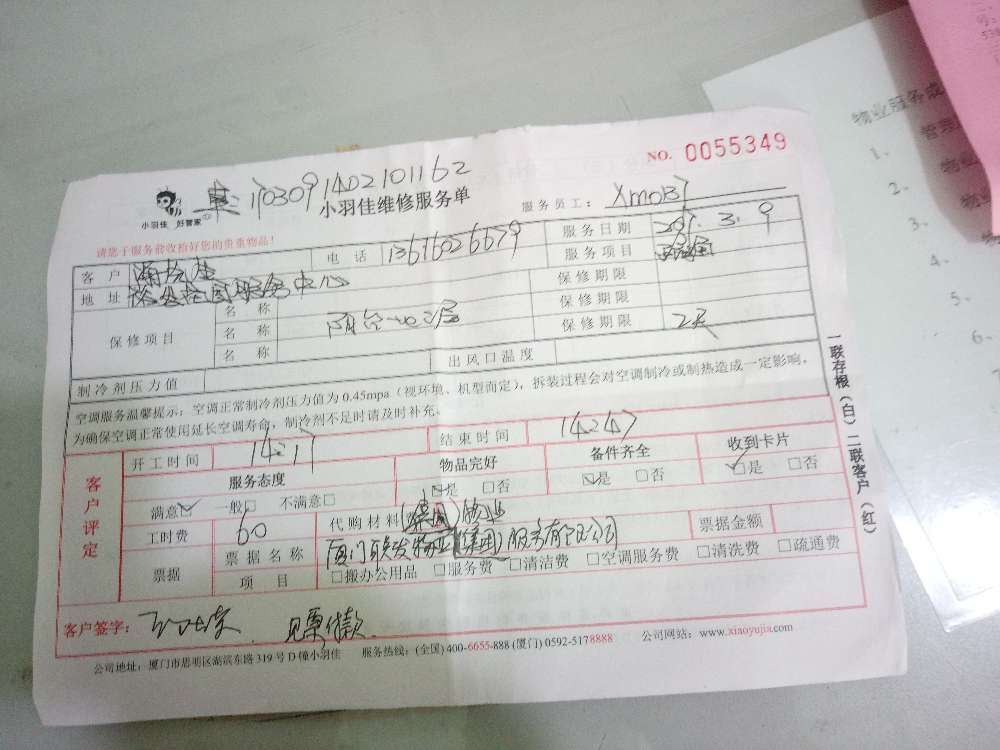 NO. 0055349
170309 1402101162
小羽佳 好管家
小羽佳维修服务单
服务员工：
请您于服务前收拾好您的贵重物品！
客户
电话 13616026679
服务日期 3.9
地址
服务项目
保修项目
名称
保修期限
名称
保修期限
名称
保修期限 2天
制冷剂压力值
出风口温度
空调服务温馨提示：空调正常制冷剂压力值为0.45mpa（视环境、机型而定），拆装过程会对空调制冷或制热造成一定影响，
为确保空调正常使用延长空调寿命，制冷剂不足时请及时补充。
客户评定
开工时间 14:17
结束时间 14:47
服务态度
物品完好
备件齐全
收到卡片
满意☑ 一般□ 不满意□
☑是 □否
☑是 □否
☑是 □否
工时费 60
代购材料
票据金额
票据
票据名称 厦门联发(集团)物业服务有限公司
项目
□搬办公用品 □服务费 □清洁费 □空调服务费 □清洗费 □疏通费
客户签字：
见票付款
公司地址：厦门市思明区湖滨东路319号D幢小羽佳 服务热线：(全国) 400-6655-888 (厦门) 0592-5178888 公司网站：www.xiaoyujia.com
一联存根（白）二联客户（红）
物业服务成
1.
2.
3.
4.
5.
6.